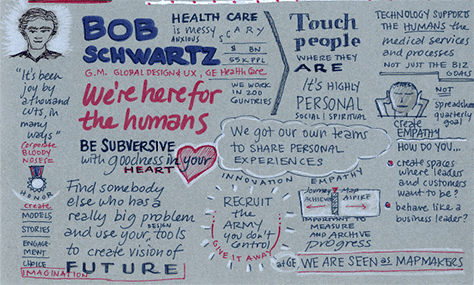 BOB
SCHWARTZ
G.M. GLOBAL DESIGN & UX, GE HealthCare
HEALTH CARE
is messy
ANXIOUS
SCARY
$ 8 BN
55K PPL
WE WORK
IN 200
COUNTRIES
Touch
people
WHERE THEY
ARE
IT'S HIGHLY
PERSONAL
SOCIAL | SPIRITUAL
TECHNOLOGY SUPPORTS
THE HUMANS the
medical services
and processes
NOT JUST THE BIZ
GOALS
NOT
Spreadsheet
quarterly
goal
CREATE
EMPATHY
HOW DO YOU...
create spaces
where leaders
and customers
want to be?
behave like a
business leader?
"It's been
joy by
a thousand
cuts, in
many
ways"
Corporate
BLOODY
NOSES
HONOR
create
MODELS
STORIES
ENGAGE-
MENT
CHOICE
IMAGINATION
We're here for
the humans
BE SUBVERSIVE
with goodness in your
HEART
Find somebody
else who has a
really big problem
and use your DESIGN tools
to create vision of
FUTURE
We got our own teams
to SHARE PERSONAL
EXPERIENCES
INNOVATION
EMPATHY
RECRUIT
the
ARMY
you don't
control
GIVE IT AWAY
Journey Map
ACHIEVE
ASPIRE
IMPORTANT TO
MEASURE
AND ARCHIVE
progress
at GE, WE ARE SEEN as MAPMAKERS